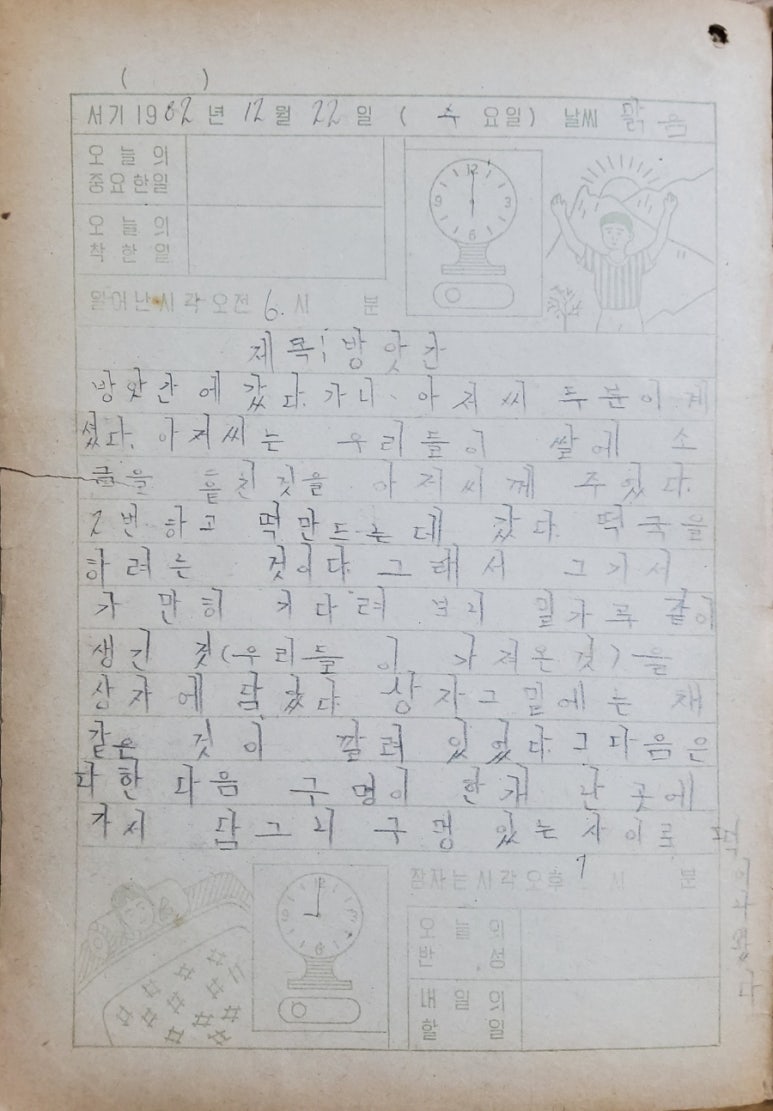 ( )
서기 1982년 12월 22일 ( 수 요일) 날씨 맑음
오늘의
중요한일
오늘의
착한일
12
3
6
9
일어난시각오전 6. 시 분
제목: 방앗간
방앗간에 갔다. 가니, 아저씨 두분이 계
셨다. 아저씨는 우리들이 쌀에 소
금을 흩친것을 아저씨께 주었다.
2번 하고 떡만드는데 갔다. 떡국을
하려는 것이다. 그래서 그기서
가만히 기다려 보니 밀가루 같이
생긴 것(우리들이 가져온것)을
상자에 담았다. 상자그 밑에는 채
같은 것이 깔려 있었다. 그다음은
다한 다음 구멍이 한개 난 곳에
가서 담그니 구멍 있는 사이로 떡
이 나왔다
잠자는시각오후 9 시 분
12
3
6
9
오늘의
반성
내일의
할일